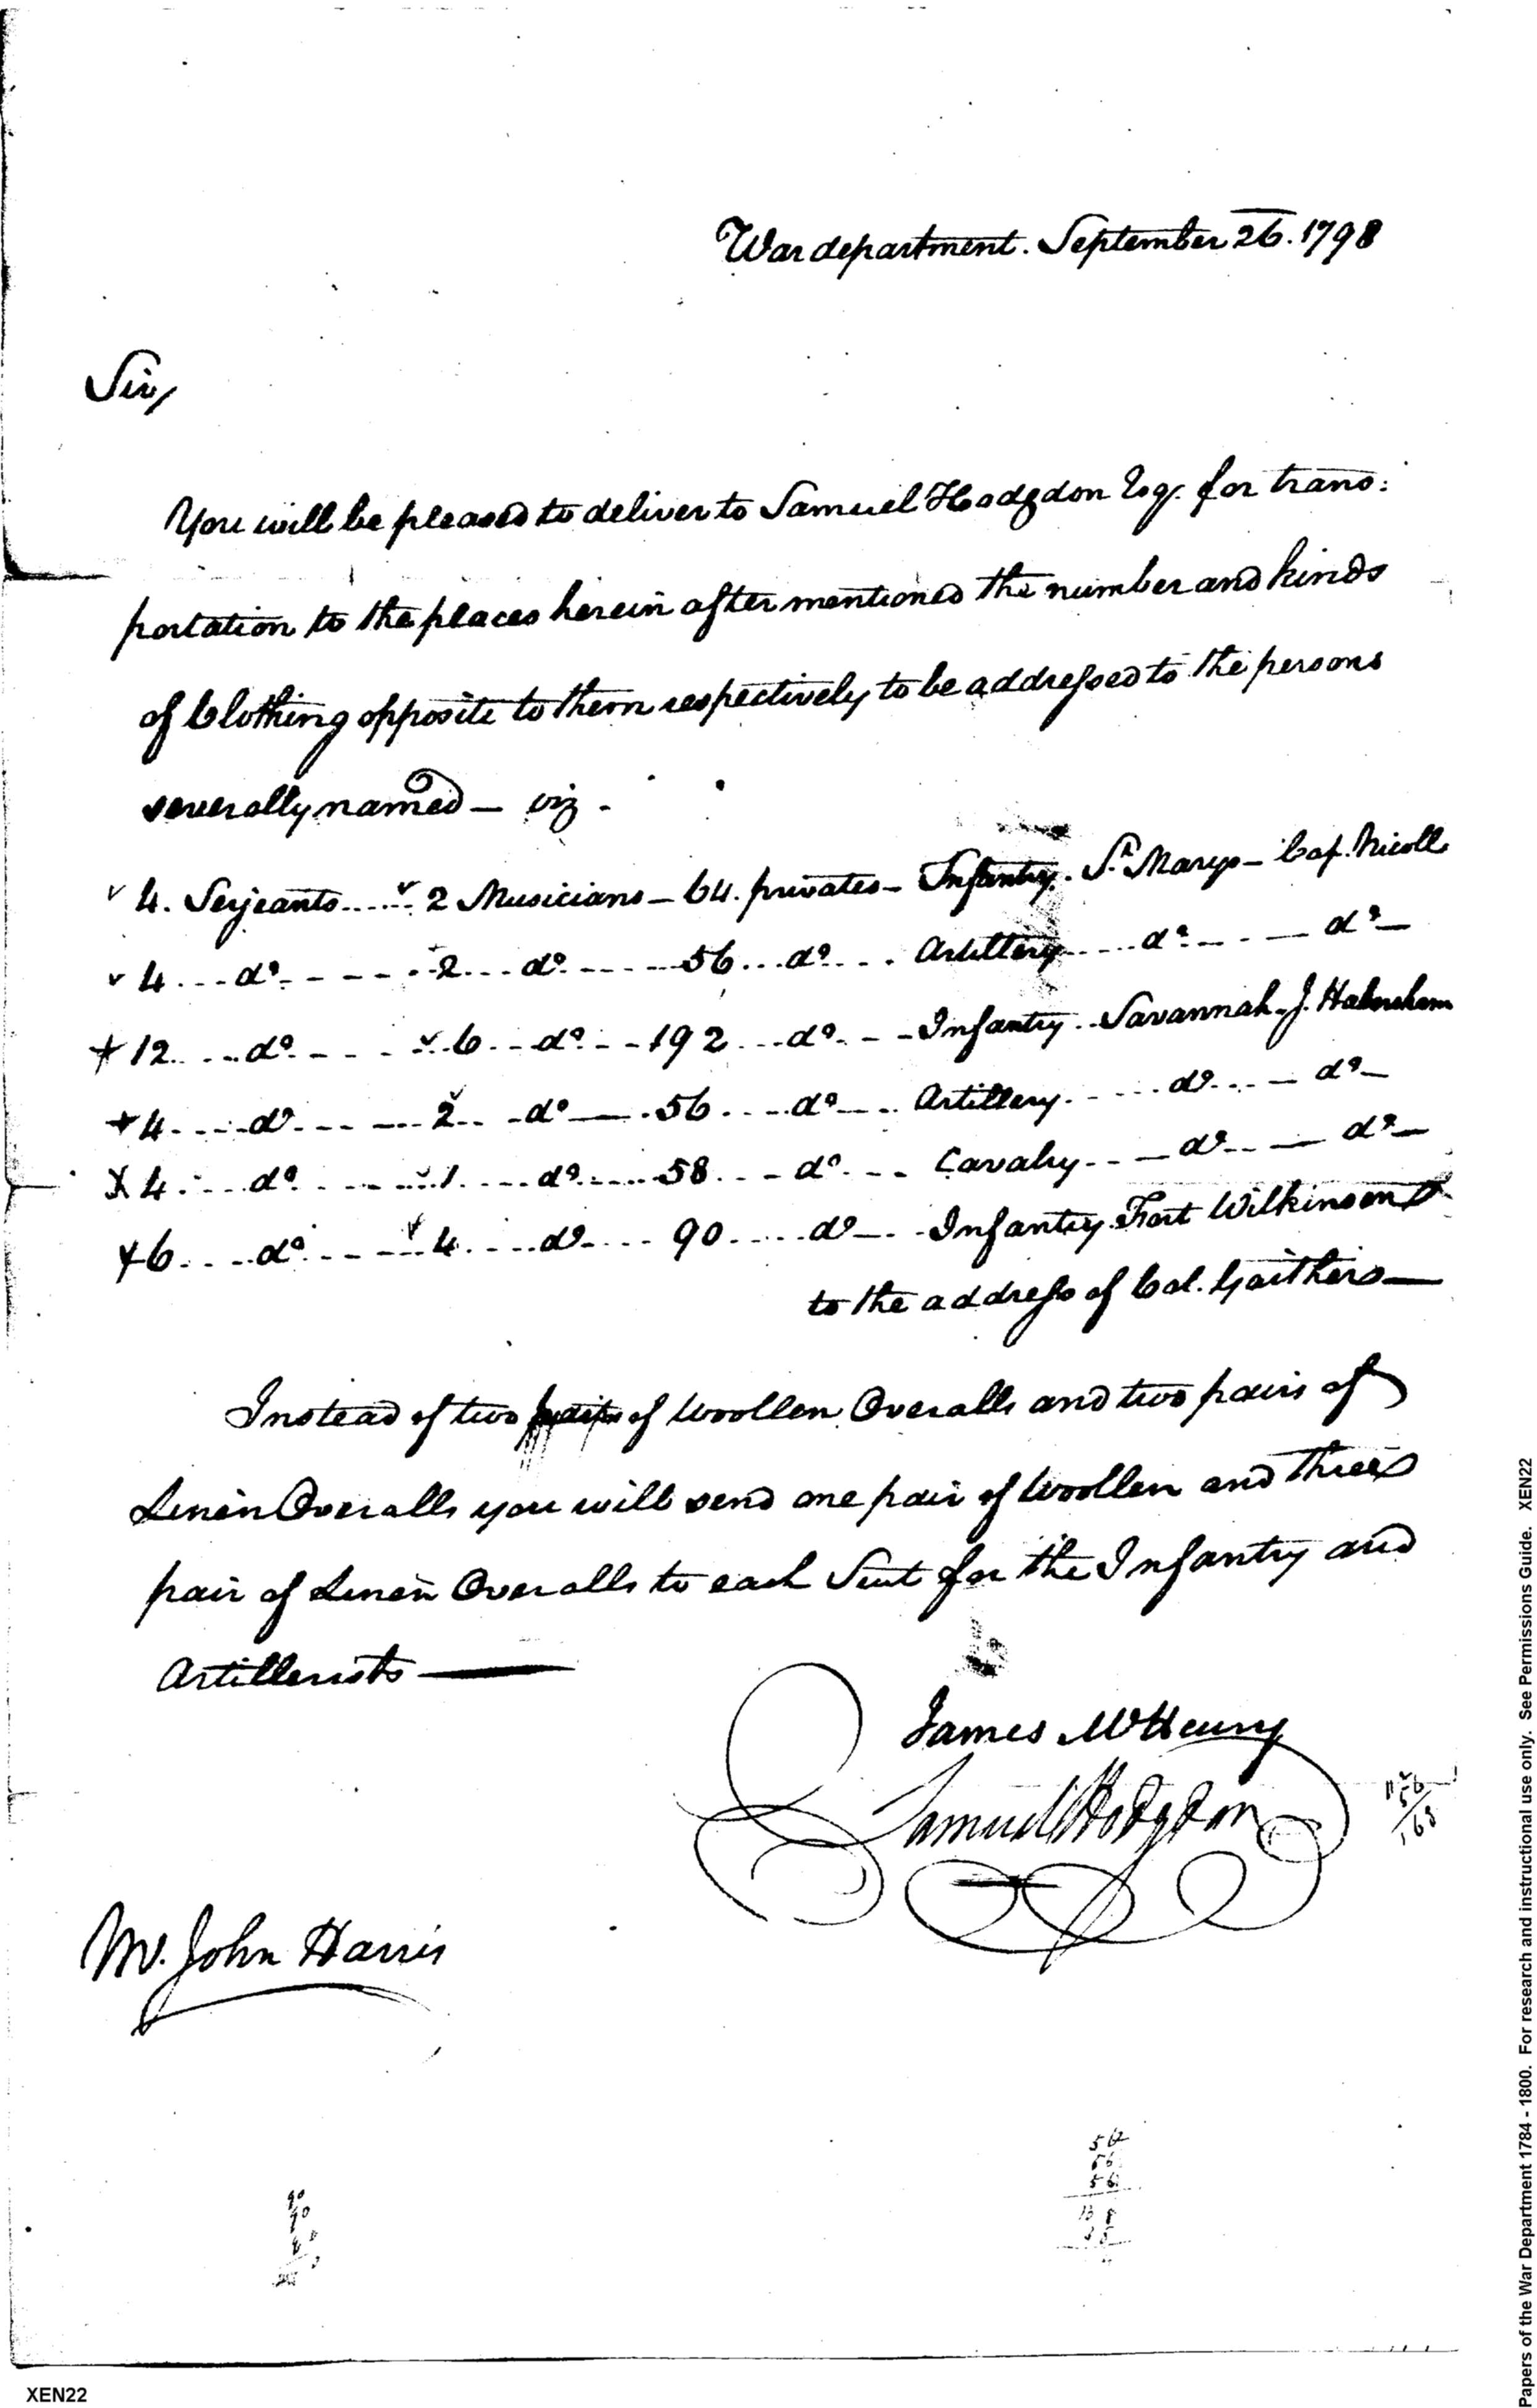 War department. September 26. 1798
Sir,
You will be pleased to deliver to Samuel Hodgdon Esq. for trans:
portation to the places herein after mentioned the number and kinds
of Clothing opposite to them respectively to be addressed to the persons
severally named — viz -
4. Serjeants ..... 2 Musicians — 64. privates — Infantry. St. Marys — Cap. Nicoll
4 ... do. - - - - 2 ... do. ----- 56 ... do. ... Artillery .... do. - - — do —
+ 12 .... do. - - - 6 ... do. - - 192 ... do. - - Infantry .. Savannah. J. Habersham
+ 4 .... do. --- ... 2 .. - do — . 56 .... do. ... Artillery. .... do. ... — do —
X 4 .... do. .... 1 .... do. .... 58 ... do. ... Cavalry .. — do. .. — do —
+ 6 .... do. - - - 4 .... do. ... 90 ..... do — .. Infantry. Fort Wilkinson
to the address of Col. Gaithers —
Instead of two of Woollen Overalls and two pairs of
Linen Overalls you will send one pair of Woollen and three
pair of Linen Overalls to each Suit for the Infantry and
Artillerists —
James McHenry
Samuel Hodgdon
56
168
Mr. John Harris
56
56
56
90
90
XEN22
Papers of the War Department 1784 - 1800. For research and instructional use only. See Permissions Guide. XEN22